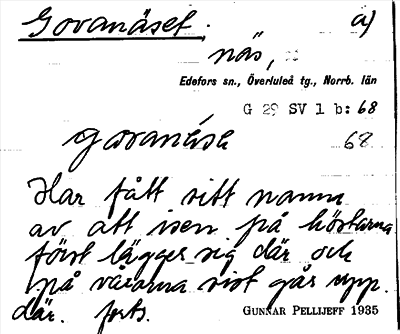 Govanäset. a)
näs,
Edefors sn., Överluleå tg., Norrb. län
G 29 SV 1 b: 68
govanäsɛ 68.
Har fått sitt namn
av att isen på höstarna
först lägger sig där och
på vårarna sist går upp
där. forts.
GUNNAR PELLIJEFF 1935